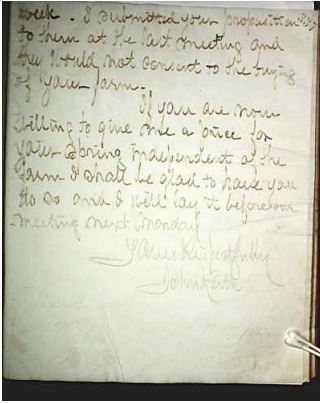 week. I submitted your proposition
to them at the last meeting and
they would not consent to the buying
of your farm.
If you are now
willing to give me a price for
your Spring independent of the
farm I shall be glad to have you
do so and I will lay it before our
meeting next Monday
Yours Respectfully
John